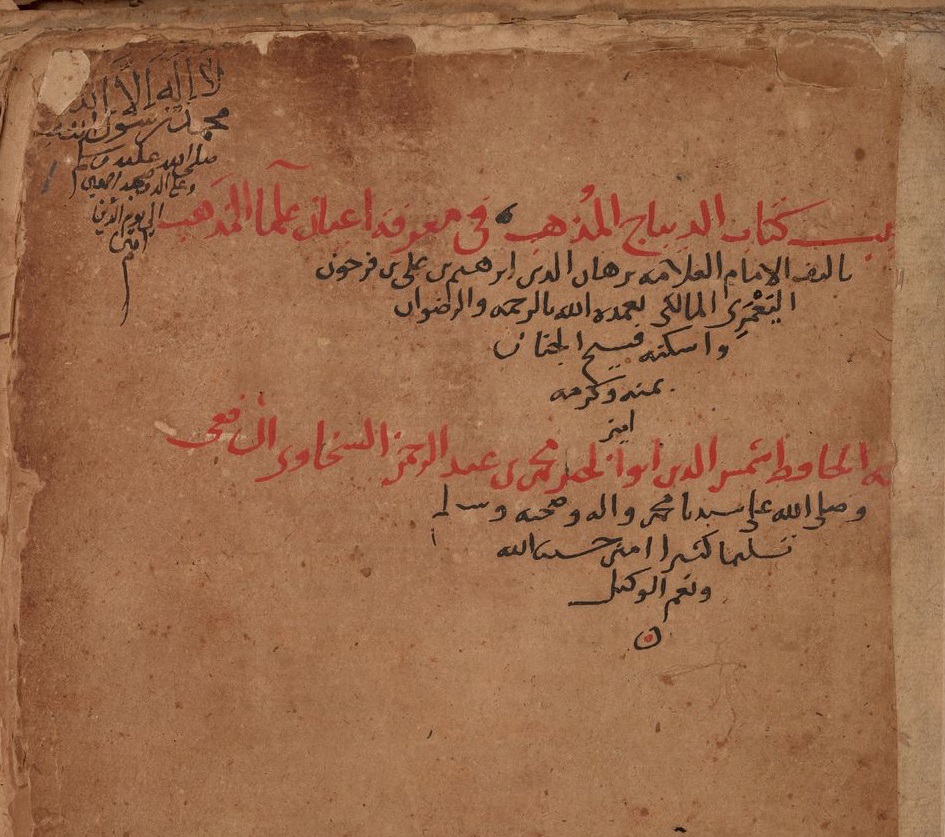 لا اله الا الله
محمد رسول الله
صلى الله عليه وسلم
وعلى اله وصحبه اجمعين
الى يوم الدين
امين
كتاب الديباج المُذهب في معرفة اعيان علما المذَهب
تاليف الامام العلامه برهان الدين ابرهيم بن علي بن فرحون
اليَعْمَرِي المالكي تغمده الله بالرحمه والرضوان
واسكنه فسيح الجنان
بمنه وكرمه
امين
الحافظ شمس الدين ابو الخير محمد بن عبد الرحمن السخاوي الشافعي
وصلى الله على سيدنا محمد واله وصحبه وسلم
تسليما كثيرا امين حسبنا الله
ونعم الوكيل